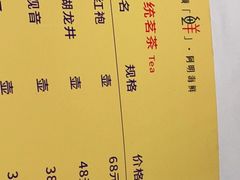 「鲜」·阿明海鲜
统茗茶 Tea
名 规格 价格
红袍 壶 68元
胡龙井 壶 48元
观音 壶 38
壶 38